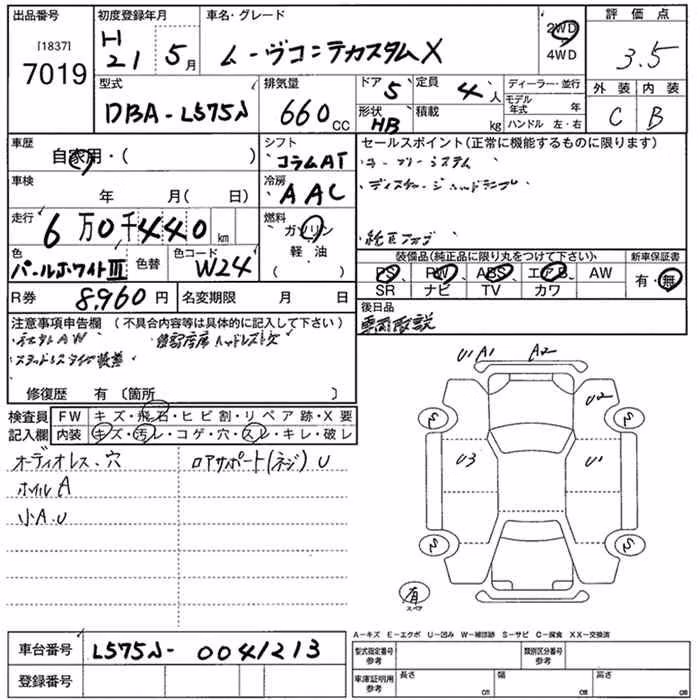 出品番号 初度登録年月 車名・グレード 評価点
[1837]
7019
H
21 5月
ムーヴコンテカスタムX
2WD
4WD
3.5
型式 排気量 ドア 5 定員 4人 ディーラー・並行 外装 内装
DBA-L575S 660CC 形状 HB 積載 kg モデル年式 年 C B
ハンドル 左・右
車歴 シフト セールスポイント(正常に機能するものに限ります)
自家用・( ) コラムAT キーフリーシステム
車検 冷房 ディスチャージヘッドランプ
年 月( 日) AAC
走行 燃料
6万0千440km ガソリン 純正アルミ
色 色替 色コード 軽油 装備品(純正品に限り丸をつけて下さい) 新車保証書
パールホワイトIII W24 ( ) PS PW ABS エアB AW 有・無
SR ナビ TV カワ
R券 8,960円 名変期限 月 日 後日品
注意事項申告欄 (不具合内容等は具体的に記入して下さい) 車両取説
社外AW
スタッドレスタイヤ装着
修復歴 有 (箇所 )
U1 A1 A2
U2
検査員 FW キズ・飛石・ヒビ割・リペア跡・X要
記入欄 内装 キズ・汚レ・コゲ・穴・スレ・キレ・破レ
S S
オーディオレス、穴 ロアサポート(ネジ)U
U3 U1
ホイルA
小A、U
S S
有
スペア
A-キズ E-エクボ U-凹み W-補修跡 S-サビ C-腐食 XX-交換済
車台番号 L575S-0041213
型式指定番号 参考 類別区分番号 参考
登録番号 車庫証明用 参考 長さ cm 幅 cm 高さ cm